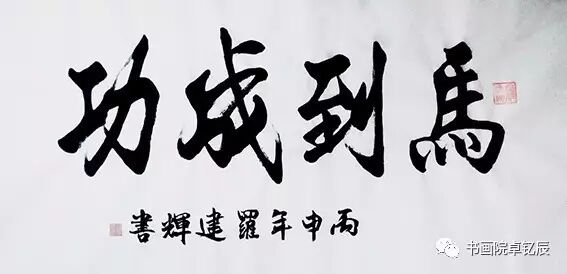 馬到成功
丙申年羅建輝書
书画院卓钇辰